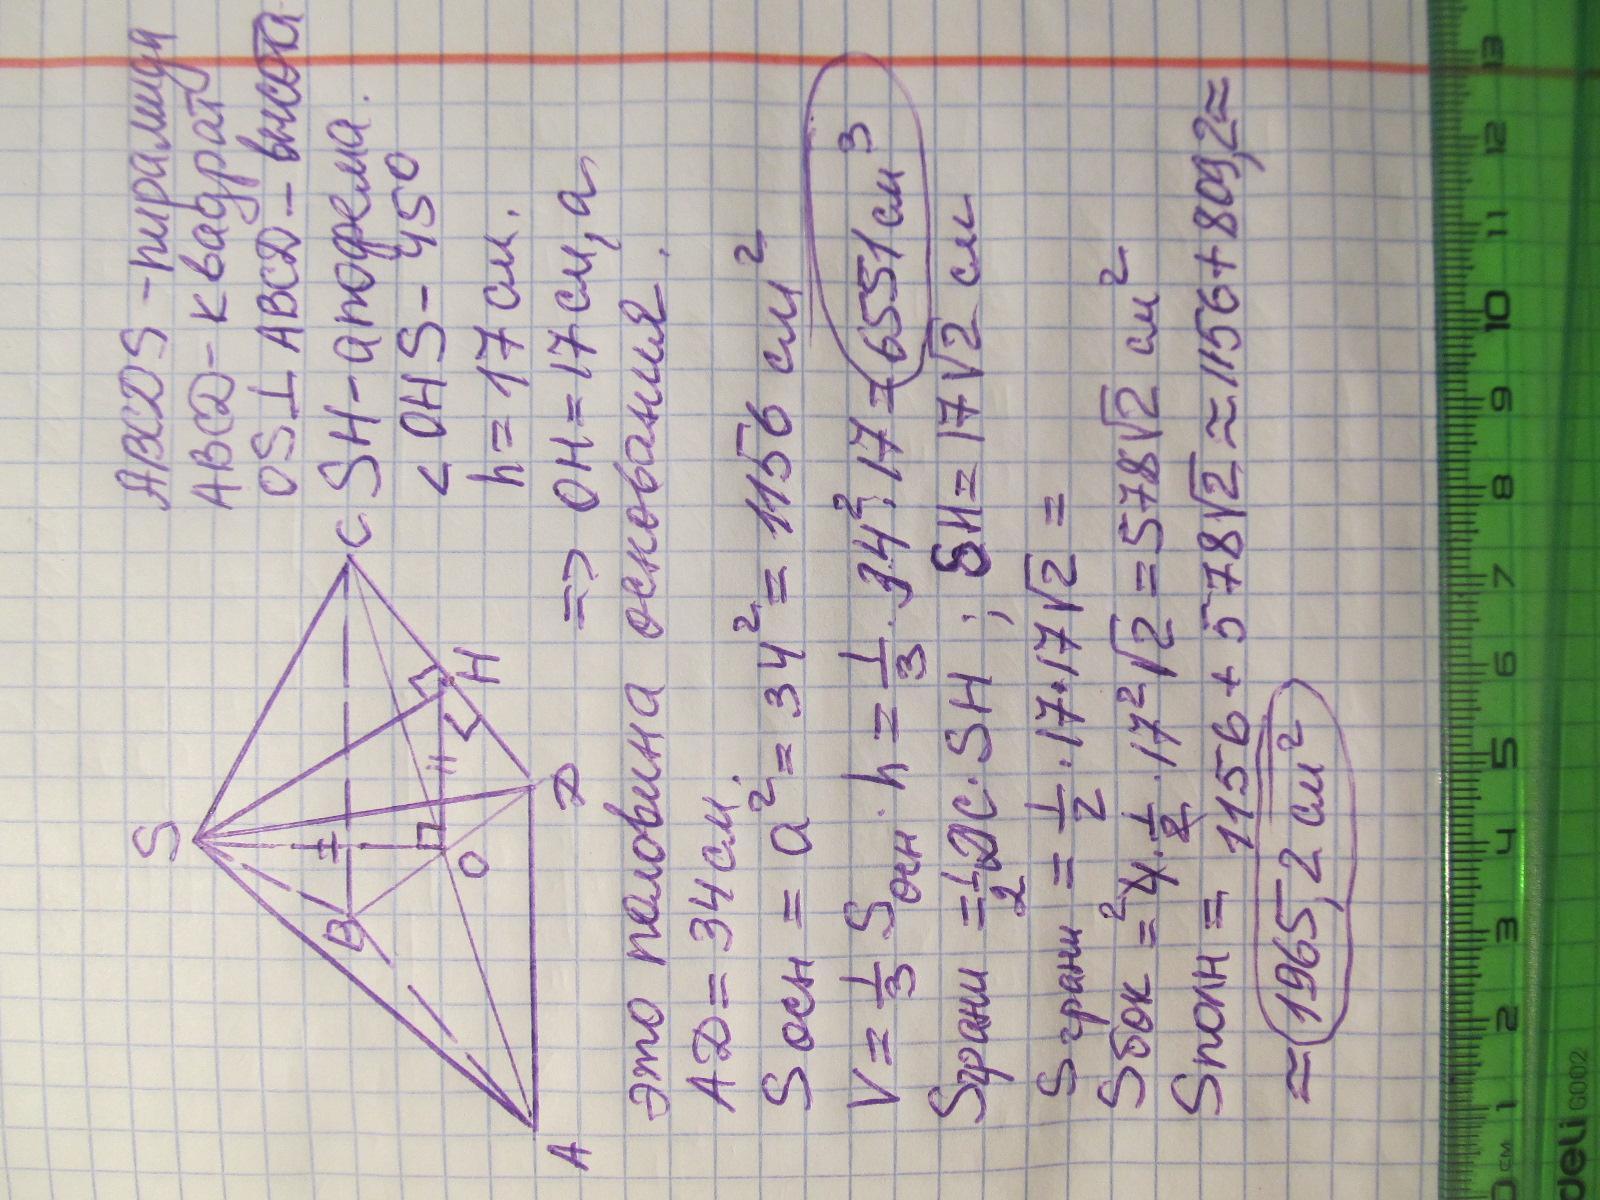 ABCDS - пирамида
ABCD - квадрат
OS⊥ABCD - высота
SH - апофема.
<OHS - 45°
h = 17 см.
=> OH = 17 см, а
это половина основания.
AD = 34 см.
Sосн = a² = 34² = 1156 см²
V = 1/3 Sосн · h = 1/3 · 34² · 17 = 6551 см³
Sграни = 1/2 DC · SH ; SH = 17√2 см
Sграни = 1/2 · 17 · 17√2 =
Sбок = 4 · 1/2 · 17²√2 = 578√2 см²
Sполн = 1156 + 578√2 ≈ 1156 + 809,2 ≈
≈ 1965,2 см²
S
B
C
H
O
D
A
0 см 1 2 3 4 5 6 7 8 9 10 11 12 13
deli G002